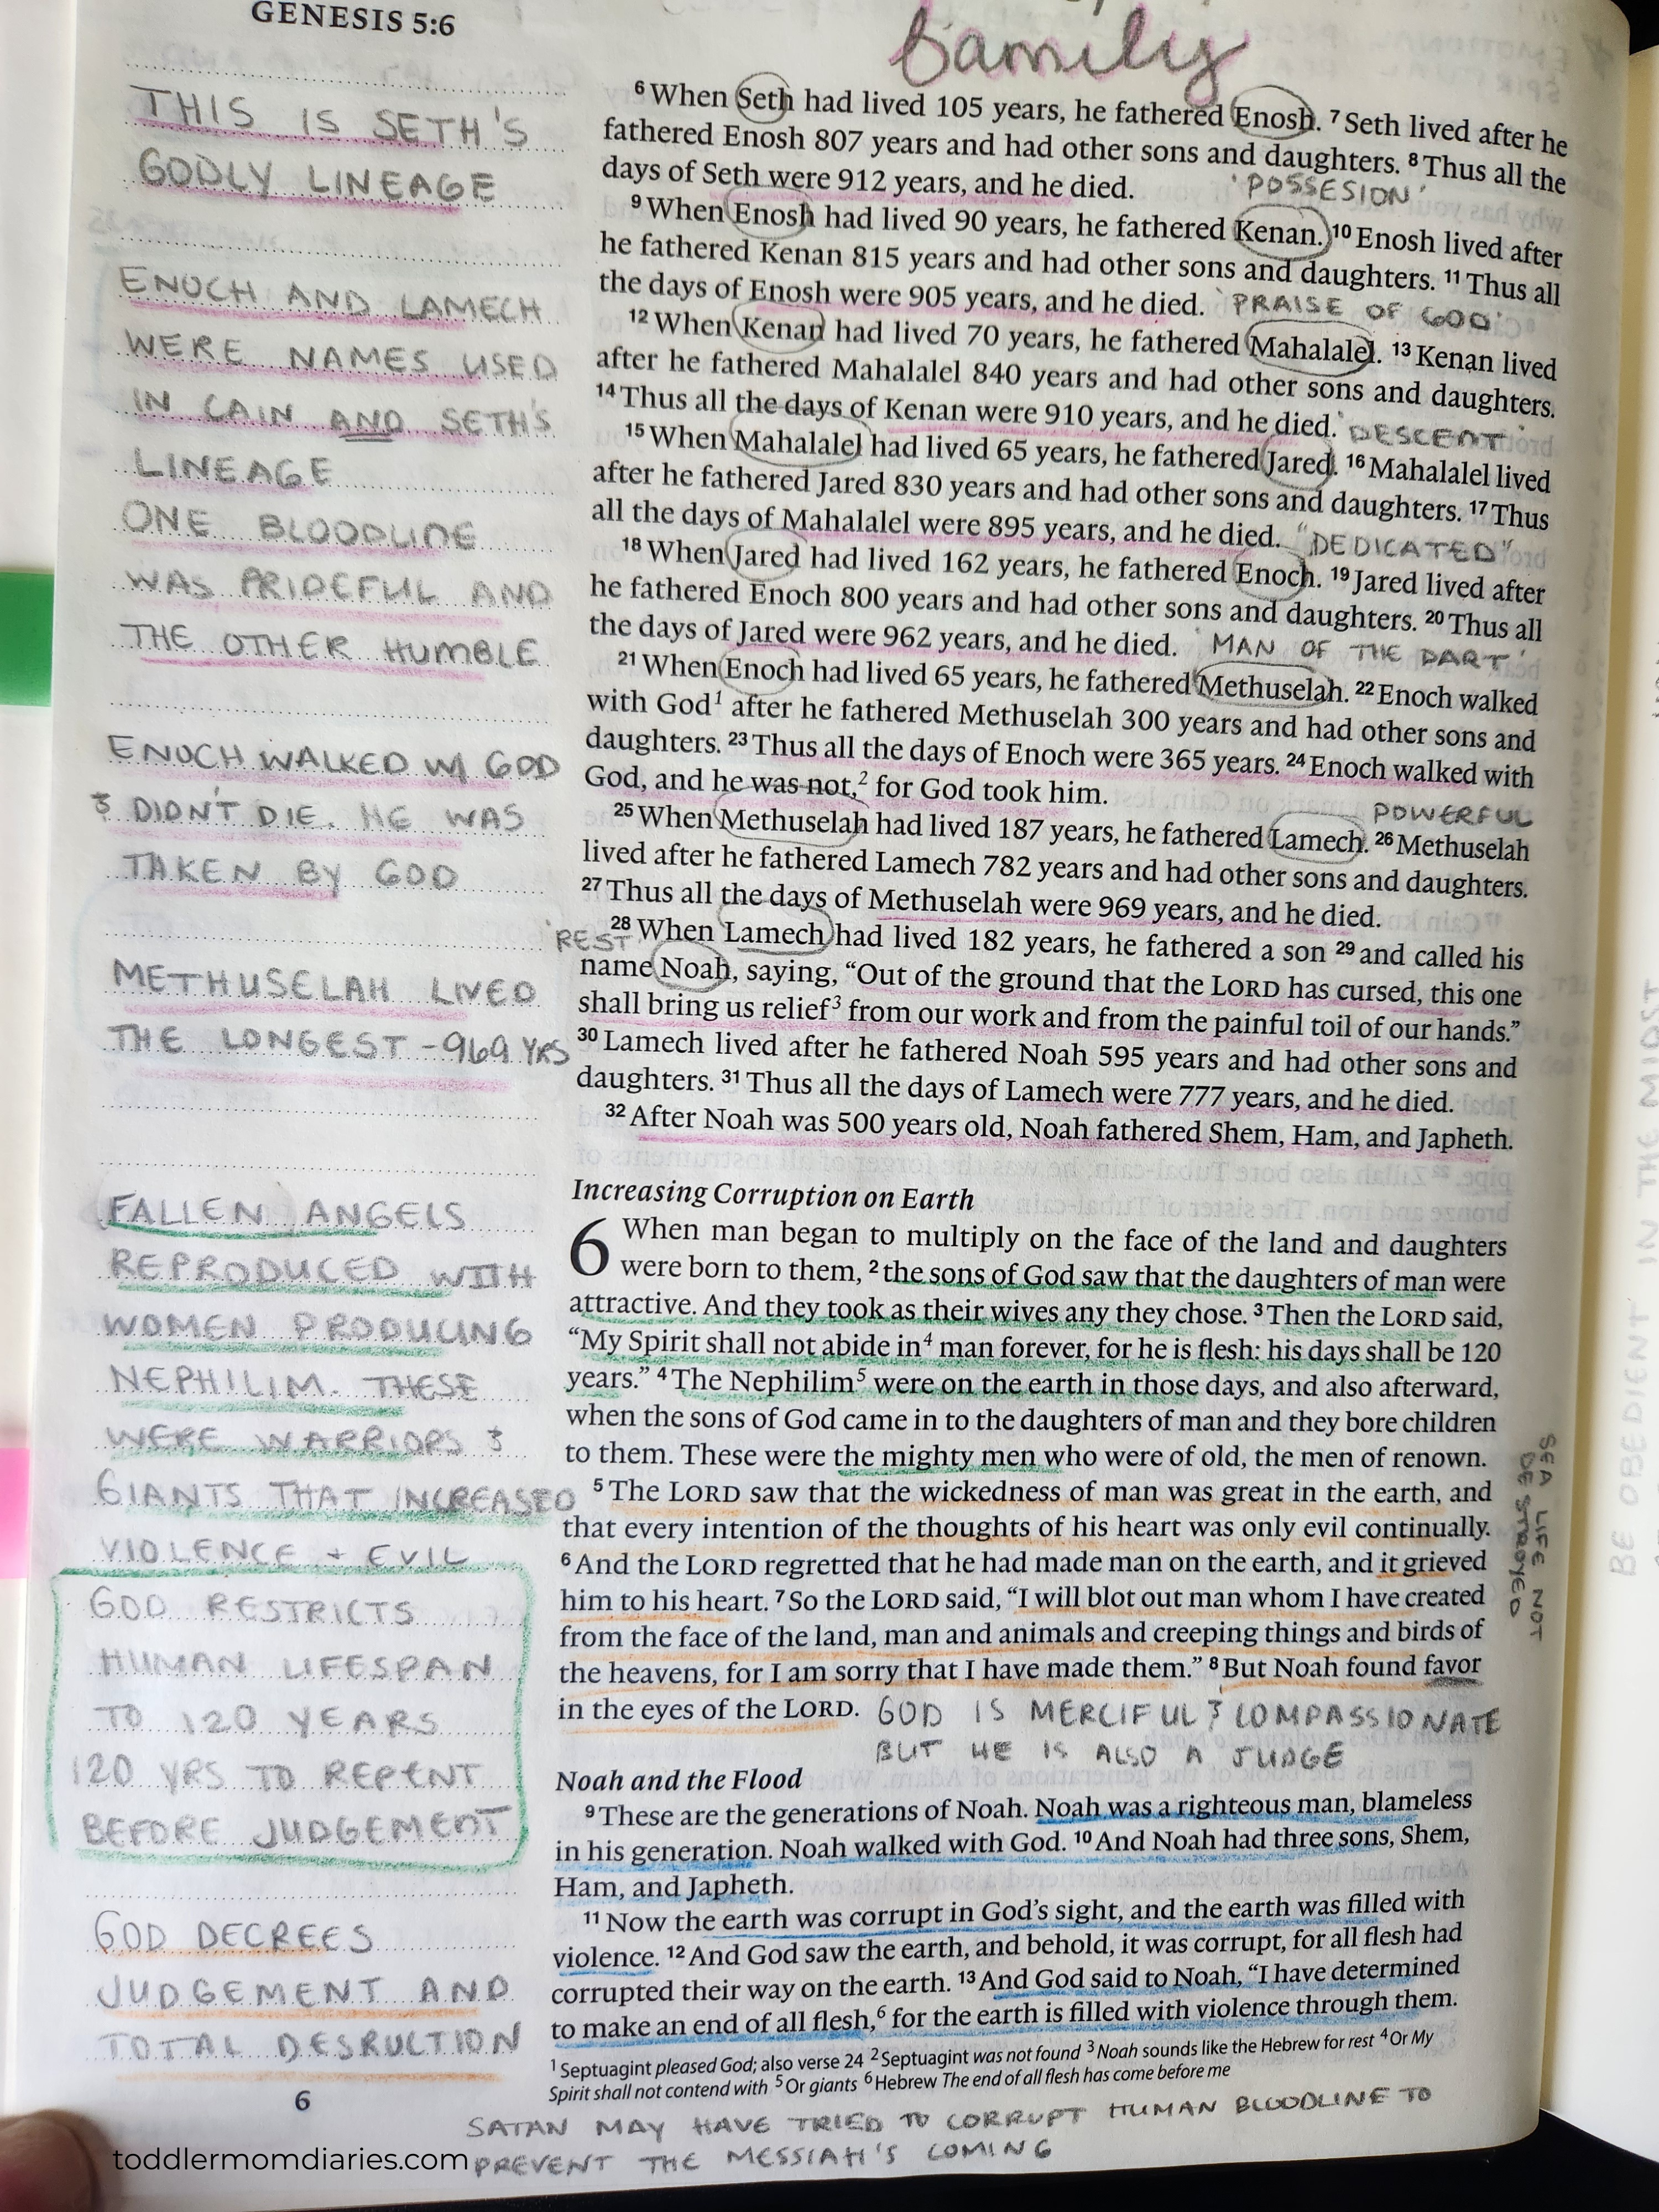 GENESIS 5:6
family
THIS IS SETH'S
GODLY LINEAGE
ENOCH AND LAMECH
WERE NAMES USED
IN CAIN AND SETH'S
LINEAGE
ONE BLOODLINE
WAS PRIDEFUL AND
THE OTHER HUMBLE
ENOCH WALKED W/ GOD
& DIDN'T DIE. HE WAS
TAKEN BY GOD
METHUSELAH LIVED
THE LONGEST - 969 YRS
FALLEN ANGELS
REPRODUCED WITH
WOMEN PRODUCING
NEPHILIM. THESE
WERE WARRIORS &
GIANTS THAT INCREASED
VIOLENCE + EVIL
GOD RESTRICTS
HUMAN LIFESPAN
TO 120 YEARS
120 YRS TO REPENT
BEFORE JUDGEMENT
GOD DECREES
JUDGEMENT AND
TOTAL DESRUCTION
6 When Seth had lived 105 years, he fathered Enosh. 7 Seth lived after he
fathered Enosh 807 years and had other sons and daughters. 8 Thus all the
days of Seth were 912 years, and he died. 'POSSESION'
9 When Enosh had lived 90 years, he fathered Kenan. 10 Enosh lived after
he fathered Kenan 815 years and had other sons and daughters. 11 Thus all
the days of Enosh were 905 years, and he died. 'PRAISE OF GOD'
12 When Kenan had lived 70 years, he fathered Mahalalel. 13 Kenan lived
after he fathered Mahalalel 840 years and had other sons and daughters.
14 Thus all the days of Kenan were 910 years, and he died. 'DESCENT'
15 When Mahalalel had lived 65 years, he fathered Jared. 16 Mahalalel lived
after he fathered Jared 830 years and had other sons and daughters. 17 Thus
all the days of Mahalalel were 895 years, and he died. "DEDICATED"
18 When Jared had lived 162 years, he fathered Enoch. 19 Jared lived after
he fathered Enoch 800 years and had other sons and daughters. 20 Thus all
the days of Jared were 962 years, and he died. 'MAN OF THE DART'
21 When Enoch had lived 65 years, he fathered Methuselah. 22 Enoch walked
with God1 after he fathered Methuselah 300 years and had other sons and
daughters. 23 Thus all the days of Enoch were 365 years. 24 Enoch walked with
God, and he was not,2 for God took him.
POWERFUL
25 When Methuselah had lived 187 years, he fathered Lamech. 26 Methuselah
lived after he fathered Lamech 782 years and had other sons and daughters.
27 Thus all the days of Methuselah were 969 years, and he died.
'REST'
28 When Lamech had lived 182 years, he fathered a son 29 and called his
name Noah, saying, “Out of the ground that the LORD has cursed, this one
shall bring us relief3 from our work and from the painful toil of our hands.”
30 Lamech lived after he fathered Noah 595 years and had other sons and
daughters. 31 Thus all the days of Lamech were 777 years, and he died.
32 After Noah was 500 years old, Noah fathered Shem, Ham, and Japheth.
Increasing Corruption on Earth
6 When man began to multiply on the face of the land and daughters
were born to them, 2 the sons of God saw that the daughters of man were
attractive. And they took as their wives any they chose. 3 Then the LORD said,
“My Spirit shall not abide in4 man forever, for he is flesh: his days shall be 120
years.” 4 The Nephilim5 were on the earth in those days, and also afterward,
when the sons of God came in to the daughters of man and they bore children
to them. These were the mighty men who were of old, the men of renown.
5 The LORD saw that the wickedness of man was great in the earth, and
that every intention of the thoughts of his heart was only evil continually.
6 And the LORD regretted that he had made man on the earth, and it grieved
him to his heart. 7 So the LORD said, “I will blot out man whom I have created
from the face of the land, man and animals and creeping things and birds of
the heavens, for I am sorry that I have made them.” 8 But Noah found favor
in the eyes of the LORD. GOD IS MERCIFUL & COMPASSIONATE
BUT HE IS ALSO A JUDGE
SEA LIFE NOT
DESTROYED
Noah and the Flood
9 These are the generations of Noah. Noah was a righteous man, blameless
in his generation. Noah walked with God. 10 And Noah had three sons, Shem,
Ham, and Japheth.
11 Now the earth was corrupt in God’s sight, and the earth was filled with
violence. 12 And God saw the earth, and behold, it was corrupt, for all flesh had
corrupted their way on the earth. 13 And God said to Noah, “I have determined
to make an end of all flesh,6 for the earth is filled with violence through them.
1 Septuagint pleased God; also verse 24 2 Septuagint was not found 3 Noah sounds like the Hebrew for rest 4 Or My
Spirit shall not contend with 5 Or giants 6 Hebrew The end of all flesh has come before me
6
SATAN MAY HAVE TRIED TO CORRUPT HUMAN BLOODLINE TO
PREVENT THE MESSIAH'S COMING
toddlermomdiaries.com
BE OBEDIENT IN THE MIDST